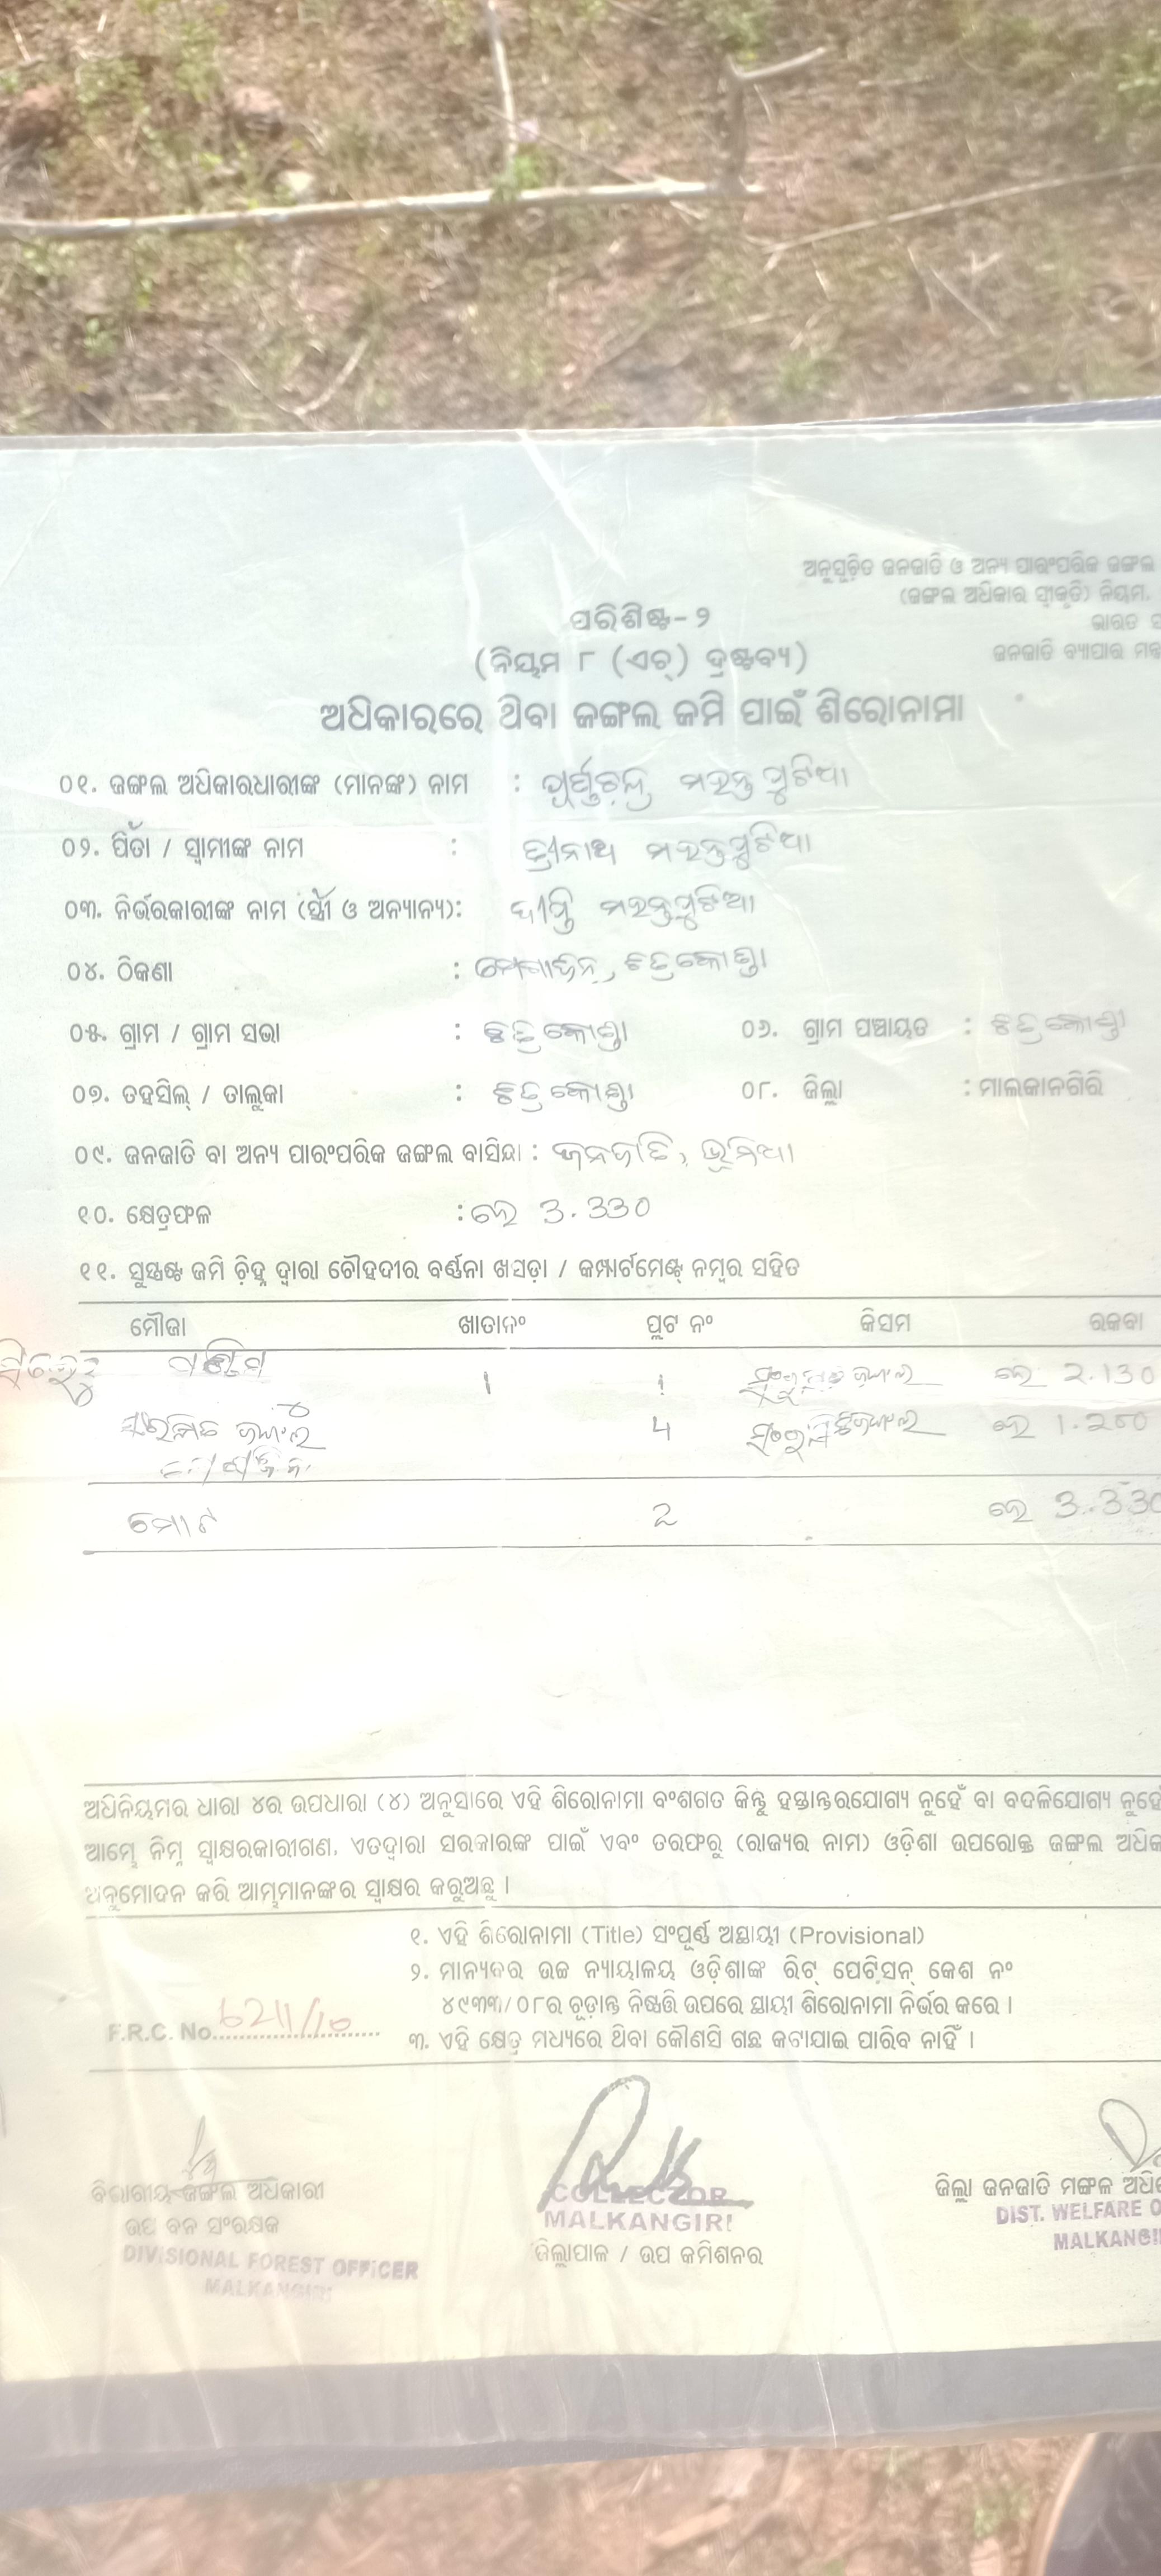 ଅନୁସୂଚିତ ଜନଜାତି ଓ ଅନ୍ୟ ପାରଂପରିକ ଜଙ୍ଗଲ
(ଜଙ୍ଗଲ ଅଧିକାର ସ୍ୱୀକୃତି) ନିୟମ,
ଭାରତ
ଜନଜାତି ବ୍ୟାପାର
ପରିଶିଷ୍ଟ-୨
(ନିୟମ ୮ (ଏଚ୍) ଦ୍ରଷ୍ଟବ୍ୟ)
ଅଧିକାରରେ ଥିବା ଜଙ୍ଗଲ ଜମି ପାଇଁ ଶିରୋନାମା
୦୧. ଜଙ୍ଗଲ ଅଧିକାରଧାରୀଙ୍କ (ମାନଙ୍କ) ନାମ : ପୂର୍ଣ୍ଣଚନ୍ଦ୍ର ମହନ୍ତ ପୁଟିଆ
୦୨. ପିତା / ସ୍ୱାମୀଙ୍କ ନାମ : ମହନ୍ତପୁଟିଆ
୦୩. ନିର୍ଭରକାରୀଙ୍କ ନାମ (ସ୍ତ୍ରୀ ଓ ଅନ୍ୟାନ୍ୟ): ମହନ୍ତପୁଟିଆ
୦୪. ଠିକଣା : ଚିତ୍ରକୋଣ୍ଡା
୦୫. ଗ୍ରାମ / ଗ୍ରାମ ସଭା : ଚିତ୍ରକୋଣ୍ଡା ୦୬. ଗ୍ରାମ ପଞ୍ଚାୟତ : ଚିତ୍ରକୋଣ୍ଡା
୦୭. ତହସିଲ୍ / ତାଲୁକା : ଚିତ୍ରକୋଣ୍ଡା ୦୮. ଜିଲ୍ଲା : ମାଲକାନଗିରି
୦୯. ଜନଜାତି ବା ଅନ୍ୟ ପାରଂପରିକ ଜଙ୍ଗଲ ବାସିନ୍ଦା : ଜନଜାତି, ଭୂମିଆ
୧୦. କ୍ଷେତ୍ରଫଳ : ହେ 3.330
୧୧. ସୁସ୍ପଷ୍ଟ ଜମି ଚିହ୍ନ ଦ୍ୱାରା ଚୌହଦୀର ବର୍ଣ୍ଣନା ଖସଡ଼ା / କମ୍ପାର୍ଟମେଣ୍ଟ୍ ନମ୍ବର ସହିତ
ମୌଜା ଖାତାନଂ ପ୍ଲଟ ନଂ କିସମ ରକବା
1 1 ଜଙ୍ଗଲ ହେ 2.130
ଜଙ୍ଗଲ 4 ଜଙ୍ଗଲ ହେ
ମୋଟ 2 ହେ 3.330
ଅଧିନିୟମର ଧାରା ୪ର ଉପଧାରା (୪) ଅନୁସାରେ ଏହି ଶିରୋନାମା ବଂଶଗତ କିନ୍ତୁ ହସ୍ତାନ୍ତରଯୋଗ୍ୟ ନୁହେଁ ବା ବଦଳିଯୋଗ୍ୟ ନୁହେଁ
ଆମ୍ଭେ ନିମ୍ନ ସ୍ୱାକ୍ଷରକାରୀଗଣ, ଏତଦ୍ୱାରା ସରକାରଙ୍କ ପାଇଁ ଏବଂ ତରଫରୁ (ରାଜ୍ୟର ନାମ) ଓଡ଼ିଶା ଉପରୋକ୍ତ ଜଙ୍ଗଲ
ଅନୁମୋଦନ କରି ଆମ୍ଭମାନଙ୍କର ସ୍ୱାକ୍ଷର କରୁଅଛୁ ।
୧. ଏହି ଶିରୋନାମା (Title) ସଂପୂର୍ଣ୍ଣ ଅସ୍ଥାୟୀ (Provisional)
୨. ମାନ୍ୟବର ଉଚ୍ଚ ନ୍ୟାୟାଳୟ ଓଡ଼ିଶାଙ୍କ ରିଟ୍ ପେଟିସନ୍ କେଶ ନଂ
୪୯୩୩/୦୮ର ଚୂଡ଼ାନ୍ତ ନିଷ୍ପତ୍ତି ଉପରେ ସ୍ଥାୟୀ ଶିରୋନାମା ନିର୍ଭର କରେ ।
F.R.C. No. 6211/10
୩. ଏହି କ୍ଷେତ୍ର ମଧ୍ୟରେ ଥିବା କୌଣସି ଗଛ କଟାଯାଇ ପାରିବ ନାହିଁ ।
ବିଭାଗୀୟ ଜଙ୍ଗଲ ଅଧିକାରୀ
ଉପ ବନ ସଂରକ୍ଷକ
DIVISIONAL FOREST OFFICER
MALKANGIRI
COLLECTOR
MALKANGIRI
ଜିଲ୍ଲାପାଳ / ଉପ କମିଶନର
ଜିଲ୍ଲା ଜନଜାତି ମଙ୍ଗଳ
DIST. WELFARE